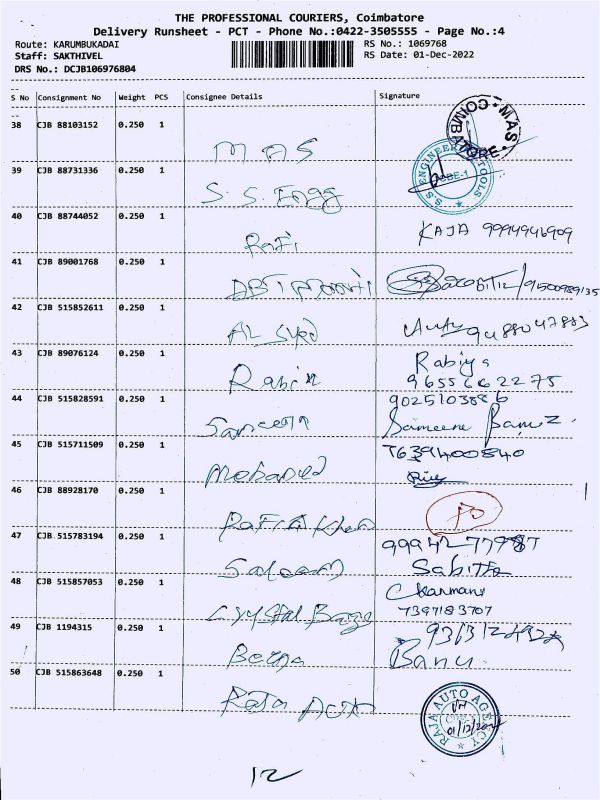 THE PROFESSIONAL COURIERS, Coimbatore
Delivery Runsheet - PCT - Phone No.:0422-3505555 - Page No.:4
Route: KARUMBUKADAI RS No.: 1069768
Staff: SAKTHIVEL RS Date: 01-Dec-2022
DRS No.: DCJB106976804
S No Consignment No Weight PCS Consignee Details Signature
38 CJB 88103152 0.250 1
MAS MAS COIMBATORE
39 CJB 88731336 0.250 1
S.S. Engg S.S. ENGINEERING TOOLS CBE-1
40 CJB 88744052 0.250 1
Rafi KAJA 9994946909
41 CJB 89001768 0.250 1
9500989135
42 CJB 515852611 0.250 1
AL Syed 9488047883
43 CJB 89076124 0.250 1
Rabiya
9655662275
44 CJB 515828591 0.250 1
9025103886
Sameena Sameene Banu
45 CJB 515711509 0.250 1
7639400840
Mohamed
46 CJB 88928170 0.250 1
Rafiq Khan
47 CJB 515783194 0.250 1
9994277987
Saleem Sabitha
48 CJB 515857053 0.250 1
7397183707
Crystal Bags
49 CJB 1194315 0.250 1
Banu
50 CJB 515863648 0.250 1
Raja Auto RAJA AUTO AGENCY
12